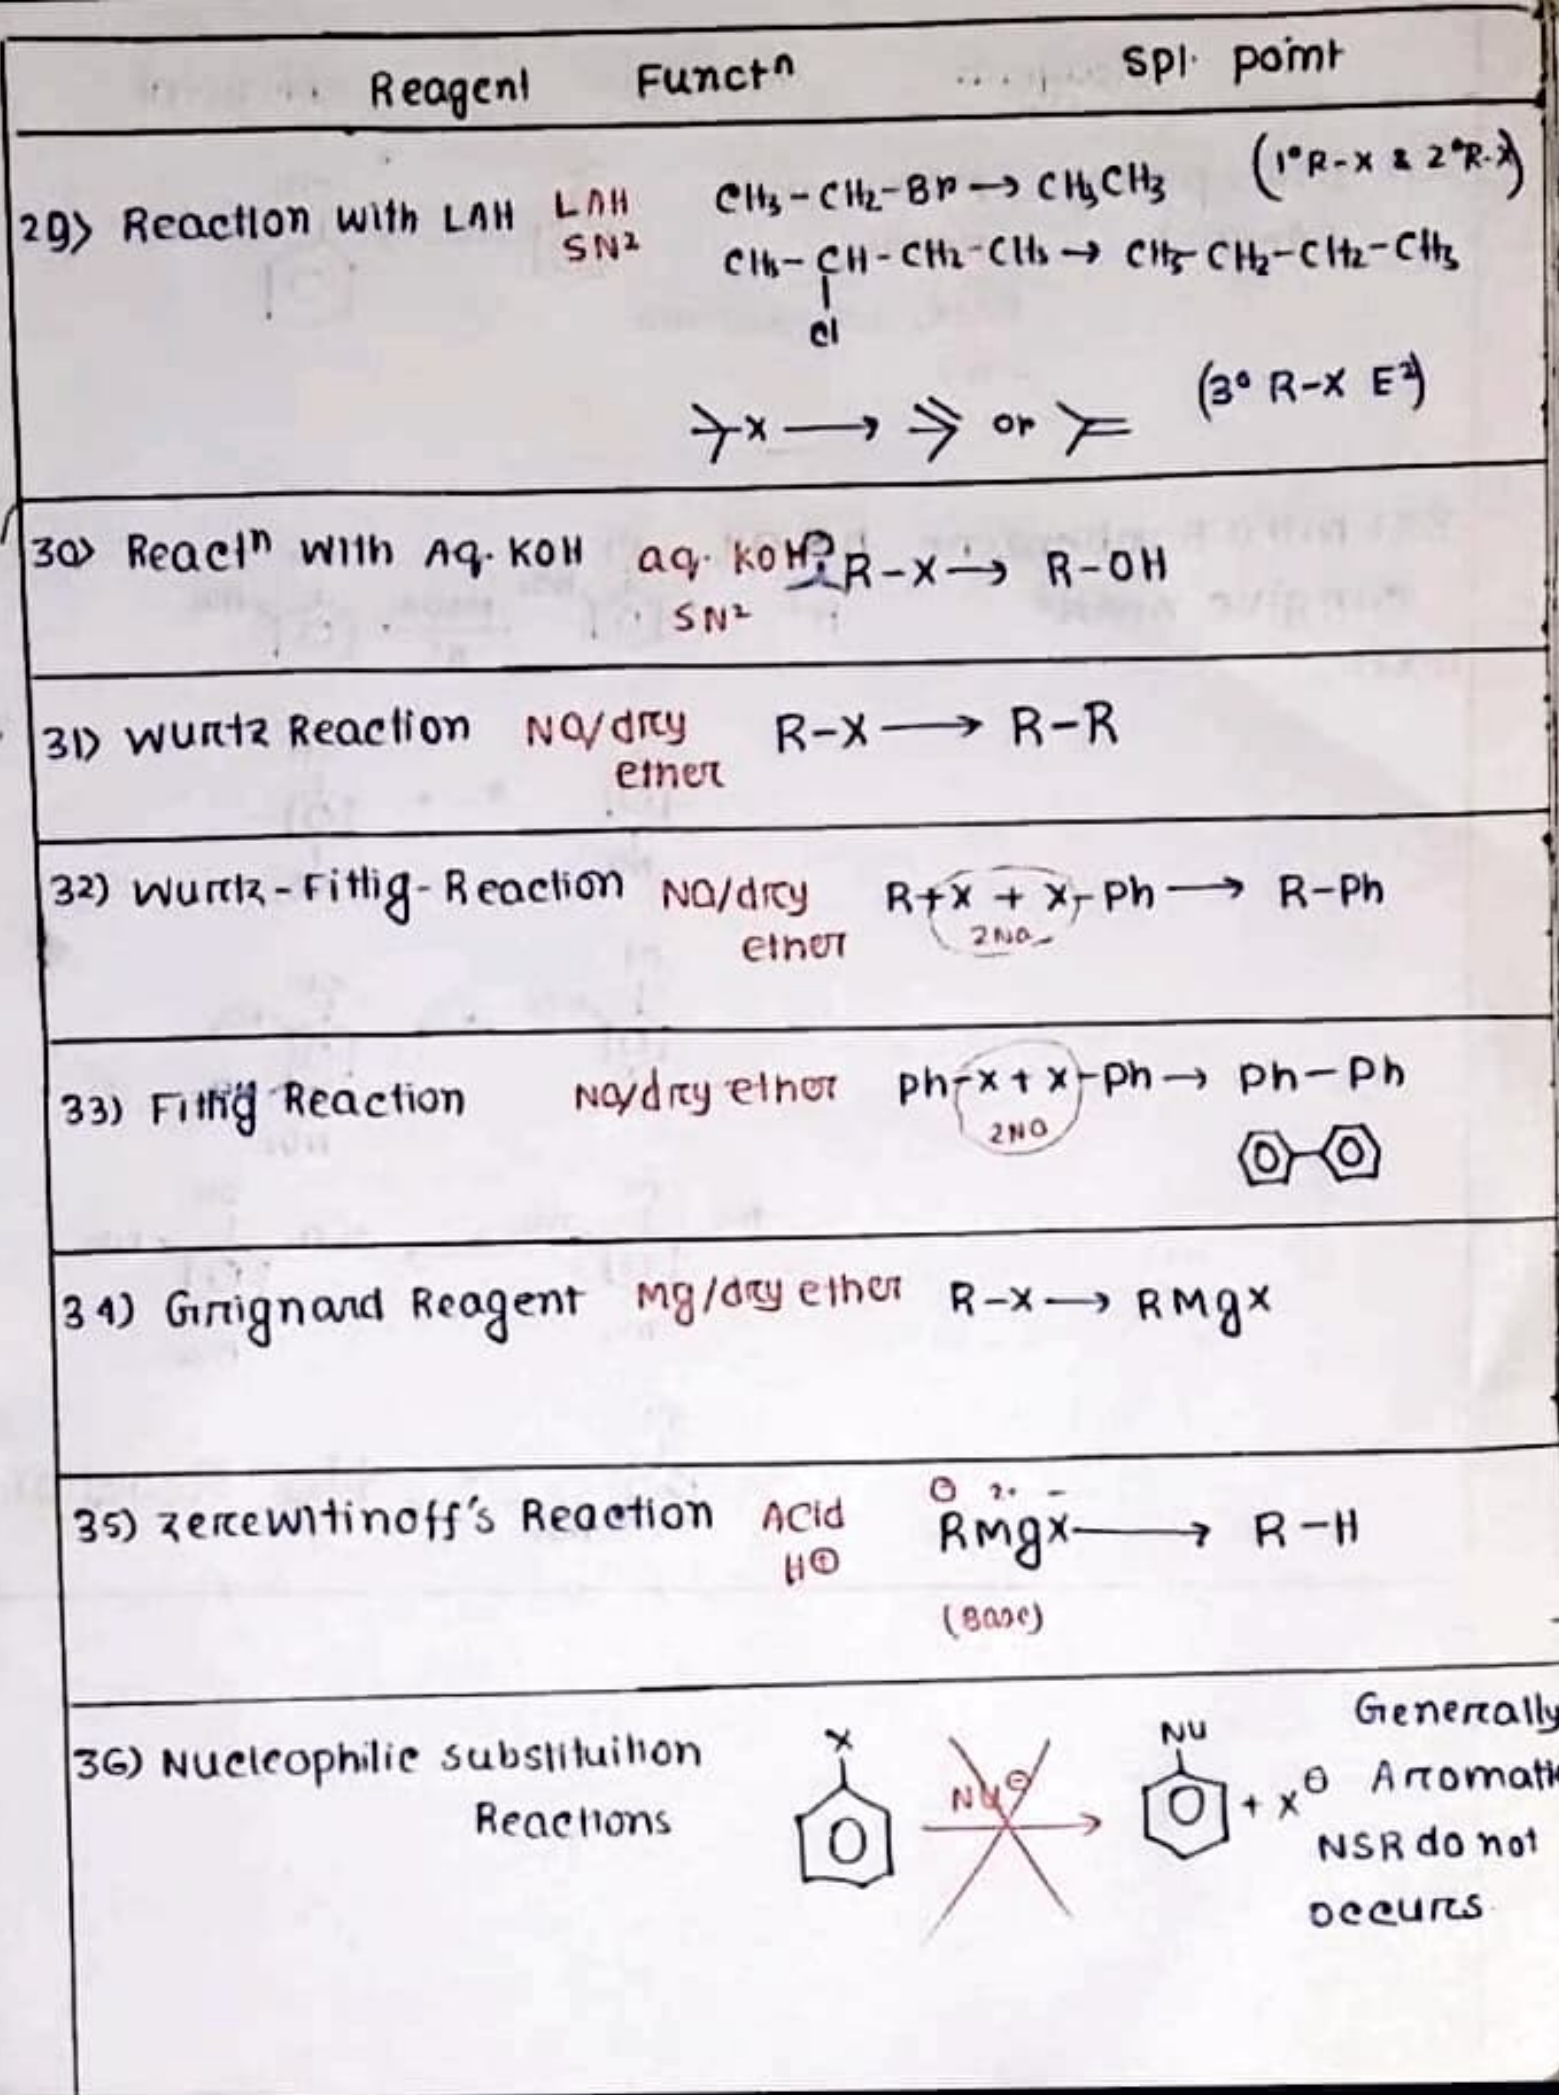 Reagent Functⁿ Spl. point
29) Reaction with LAH LAH CH₃-CH₂-Br → CH₃CH₃ (1° R-X & 2° R-X)
SN² CH₃-CH-CH₂-CH₃ → CH₃-CH₂-CH₂-CH₃
Cl
X → or (3° R-X E²)
30) Reactⁿ with Aq. KOH aq. KOH R-X → R-OH
SN²
31) Wurtz Reaction Na/dry R-X → R-R
ether
32) Wurtz-Fittig-Reaction Na/dry R-X + X-Ph → R-Ph
ether 2Na
33) Fittig Reaction Na/dry ether Ph-X + X-Ph → Ph-Ph
2Na
34) Grignard Reagent Mg/dry ether R-X → RMgX
35) Zerewitinoff's Reaction Acid RMgX → R-H
H⊕
(Base)
36) Nucleophilic substituition X Nu⊖ Nu + X⊖ Generally
Reactions Aromatic
NSR do not
occurs